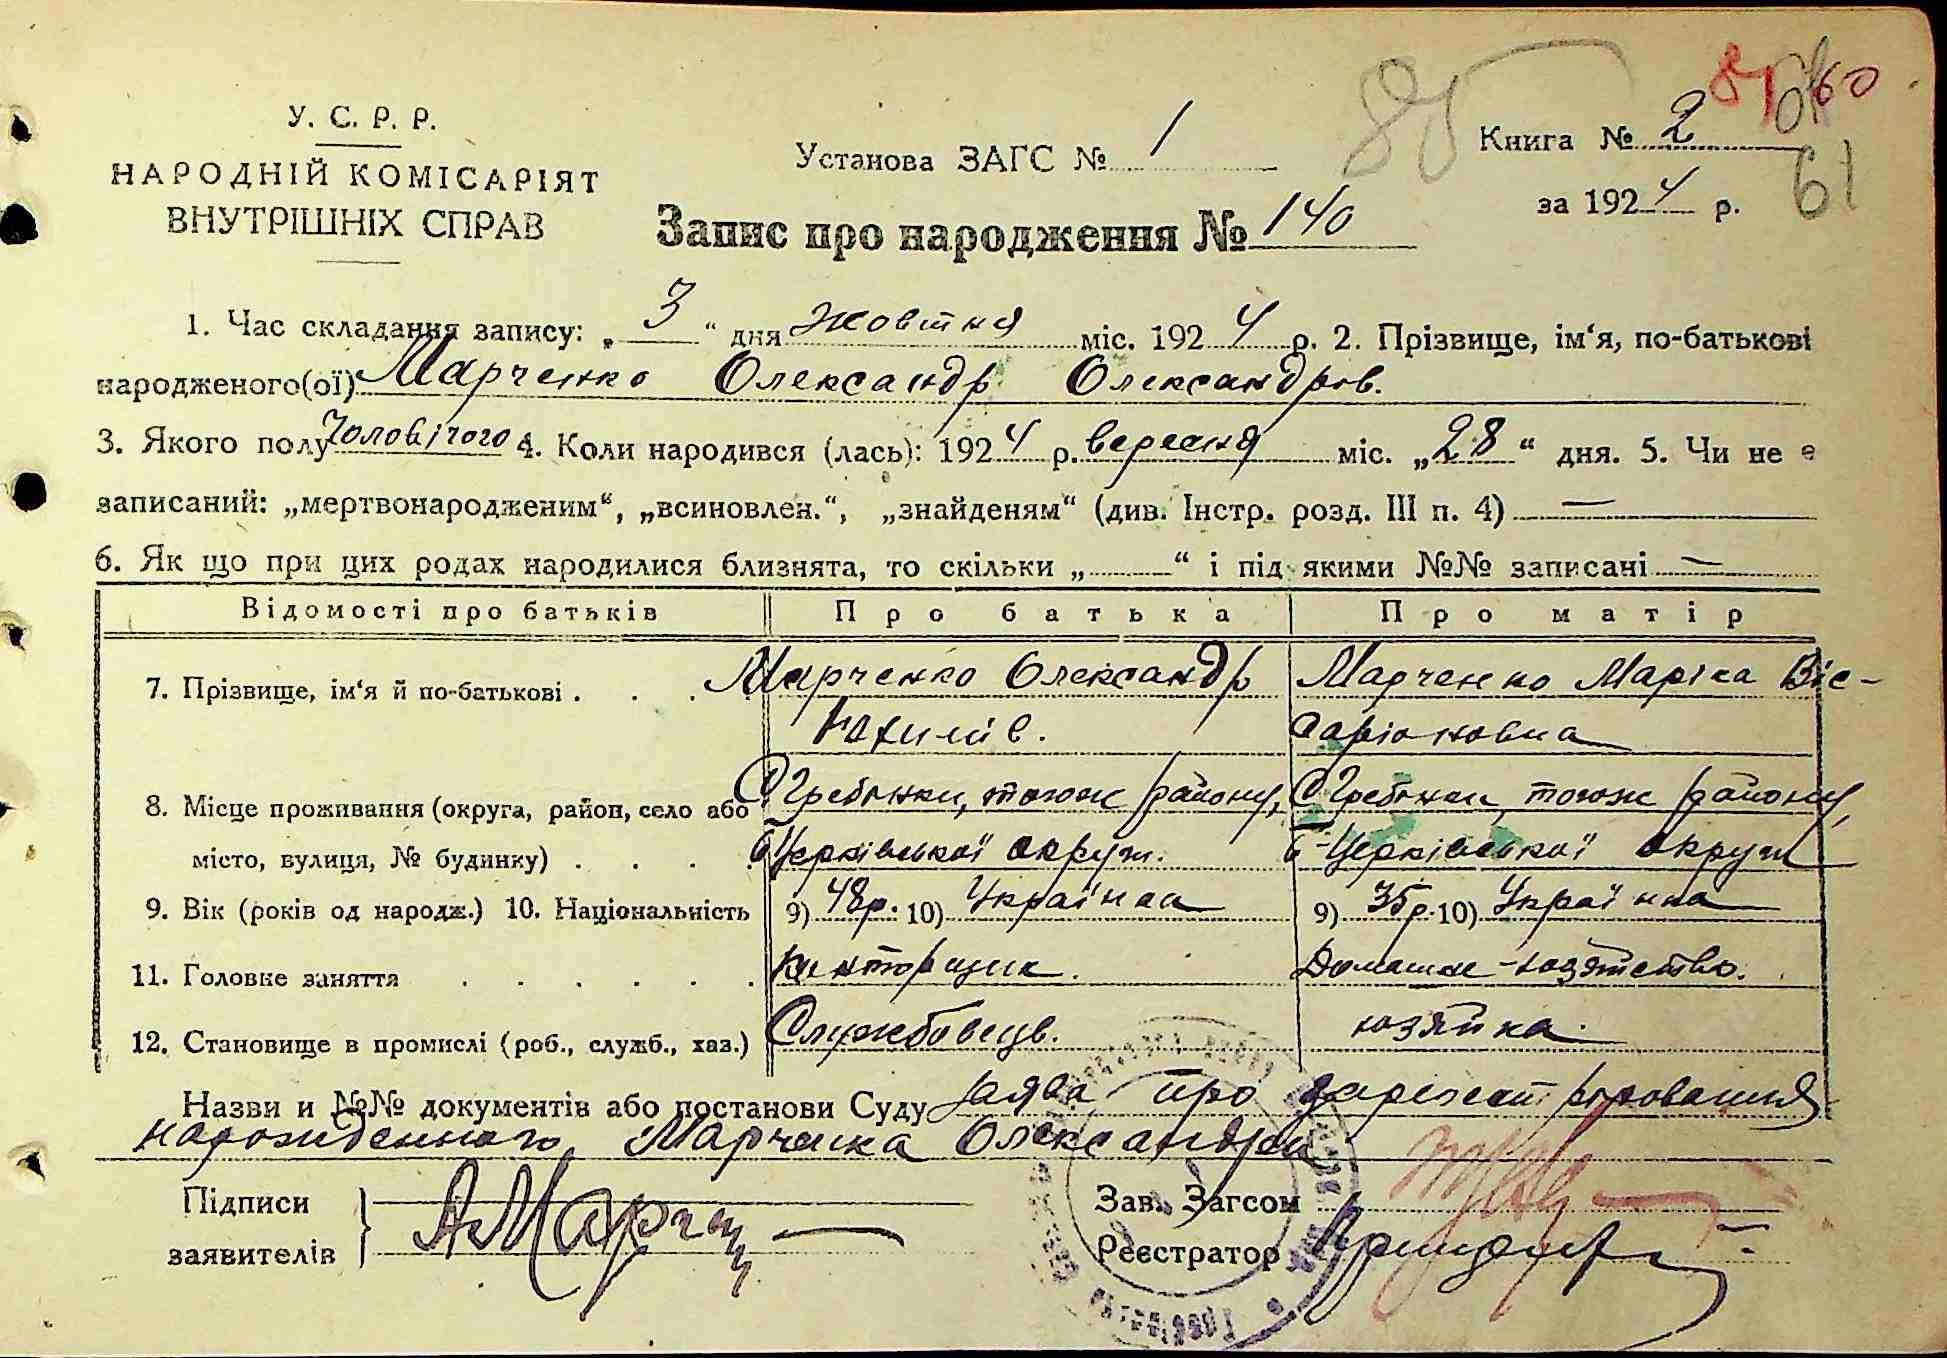 85 87 60
У. С. Р. Р.
НАРОДНІЙ КОМІСАРІЯТ
ВНУТРІШНІХ СПРАВ
Установа ЗАГС № 1
Книга № 2
за 1924 р. 61
Запис про народження № 140
1. Час складання запису: „3“ дня жовтня міс. 1924 р. 2. Прізвище, ім‘я, по-батькові
народженого(ої) Марченко Олександр Олександров.
3. Якого полу Чоловічого 4. Коли народився (лась): 1924 р. вересня міс. „28“ дня. 5. Чи не є
записаний: „мертвонародженим“, „всиновлен.“, „знайденям“ (див. Інстр. розд. III п. 4) —
6. Як що при цих родах народилися близнята, то скільки „ “ і під якими №№ записані —
Відомості про батьків Про батька Про матір
7. Прізвище, ім‘я й по-батькові . . . . Марченко Олександр Марченко Маріка Віс-
Юхимів. саріоновна
8. Місце проживання (округа, район, село або С. Гребінки, тогож району, С. Гребінки, тогож району,
місто, вулиця, № будинку) . . . . Б Церківської округи. Б-Церківської округи
9. Вік (років од народж.) 10. Національність 9) 48р. 10) Українка 9) 35р. 10) Українка
11. Головне заняття . . . . . . Конторщик. Домашнє-хозяйство.
12. Становище в промислі (роб., служб., хаз.) Службовець. хозяйка.
Назви и №№ документів або постанови Суду Заява про зарегистрирования
нарожденного Марченка Олександра
Підписи
заявителів
А Марч
Зав. Загсом
Реєстратор